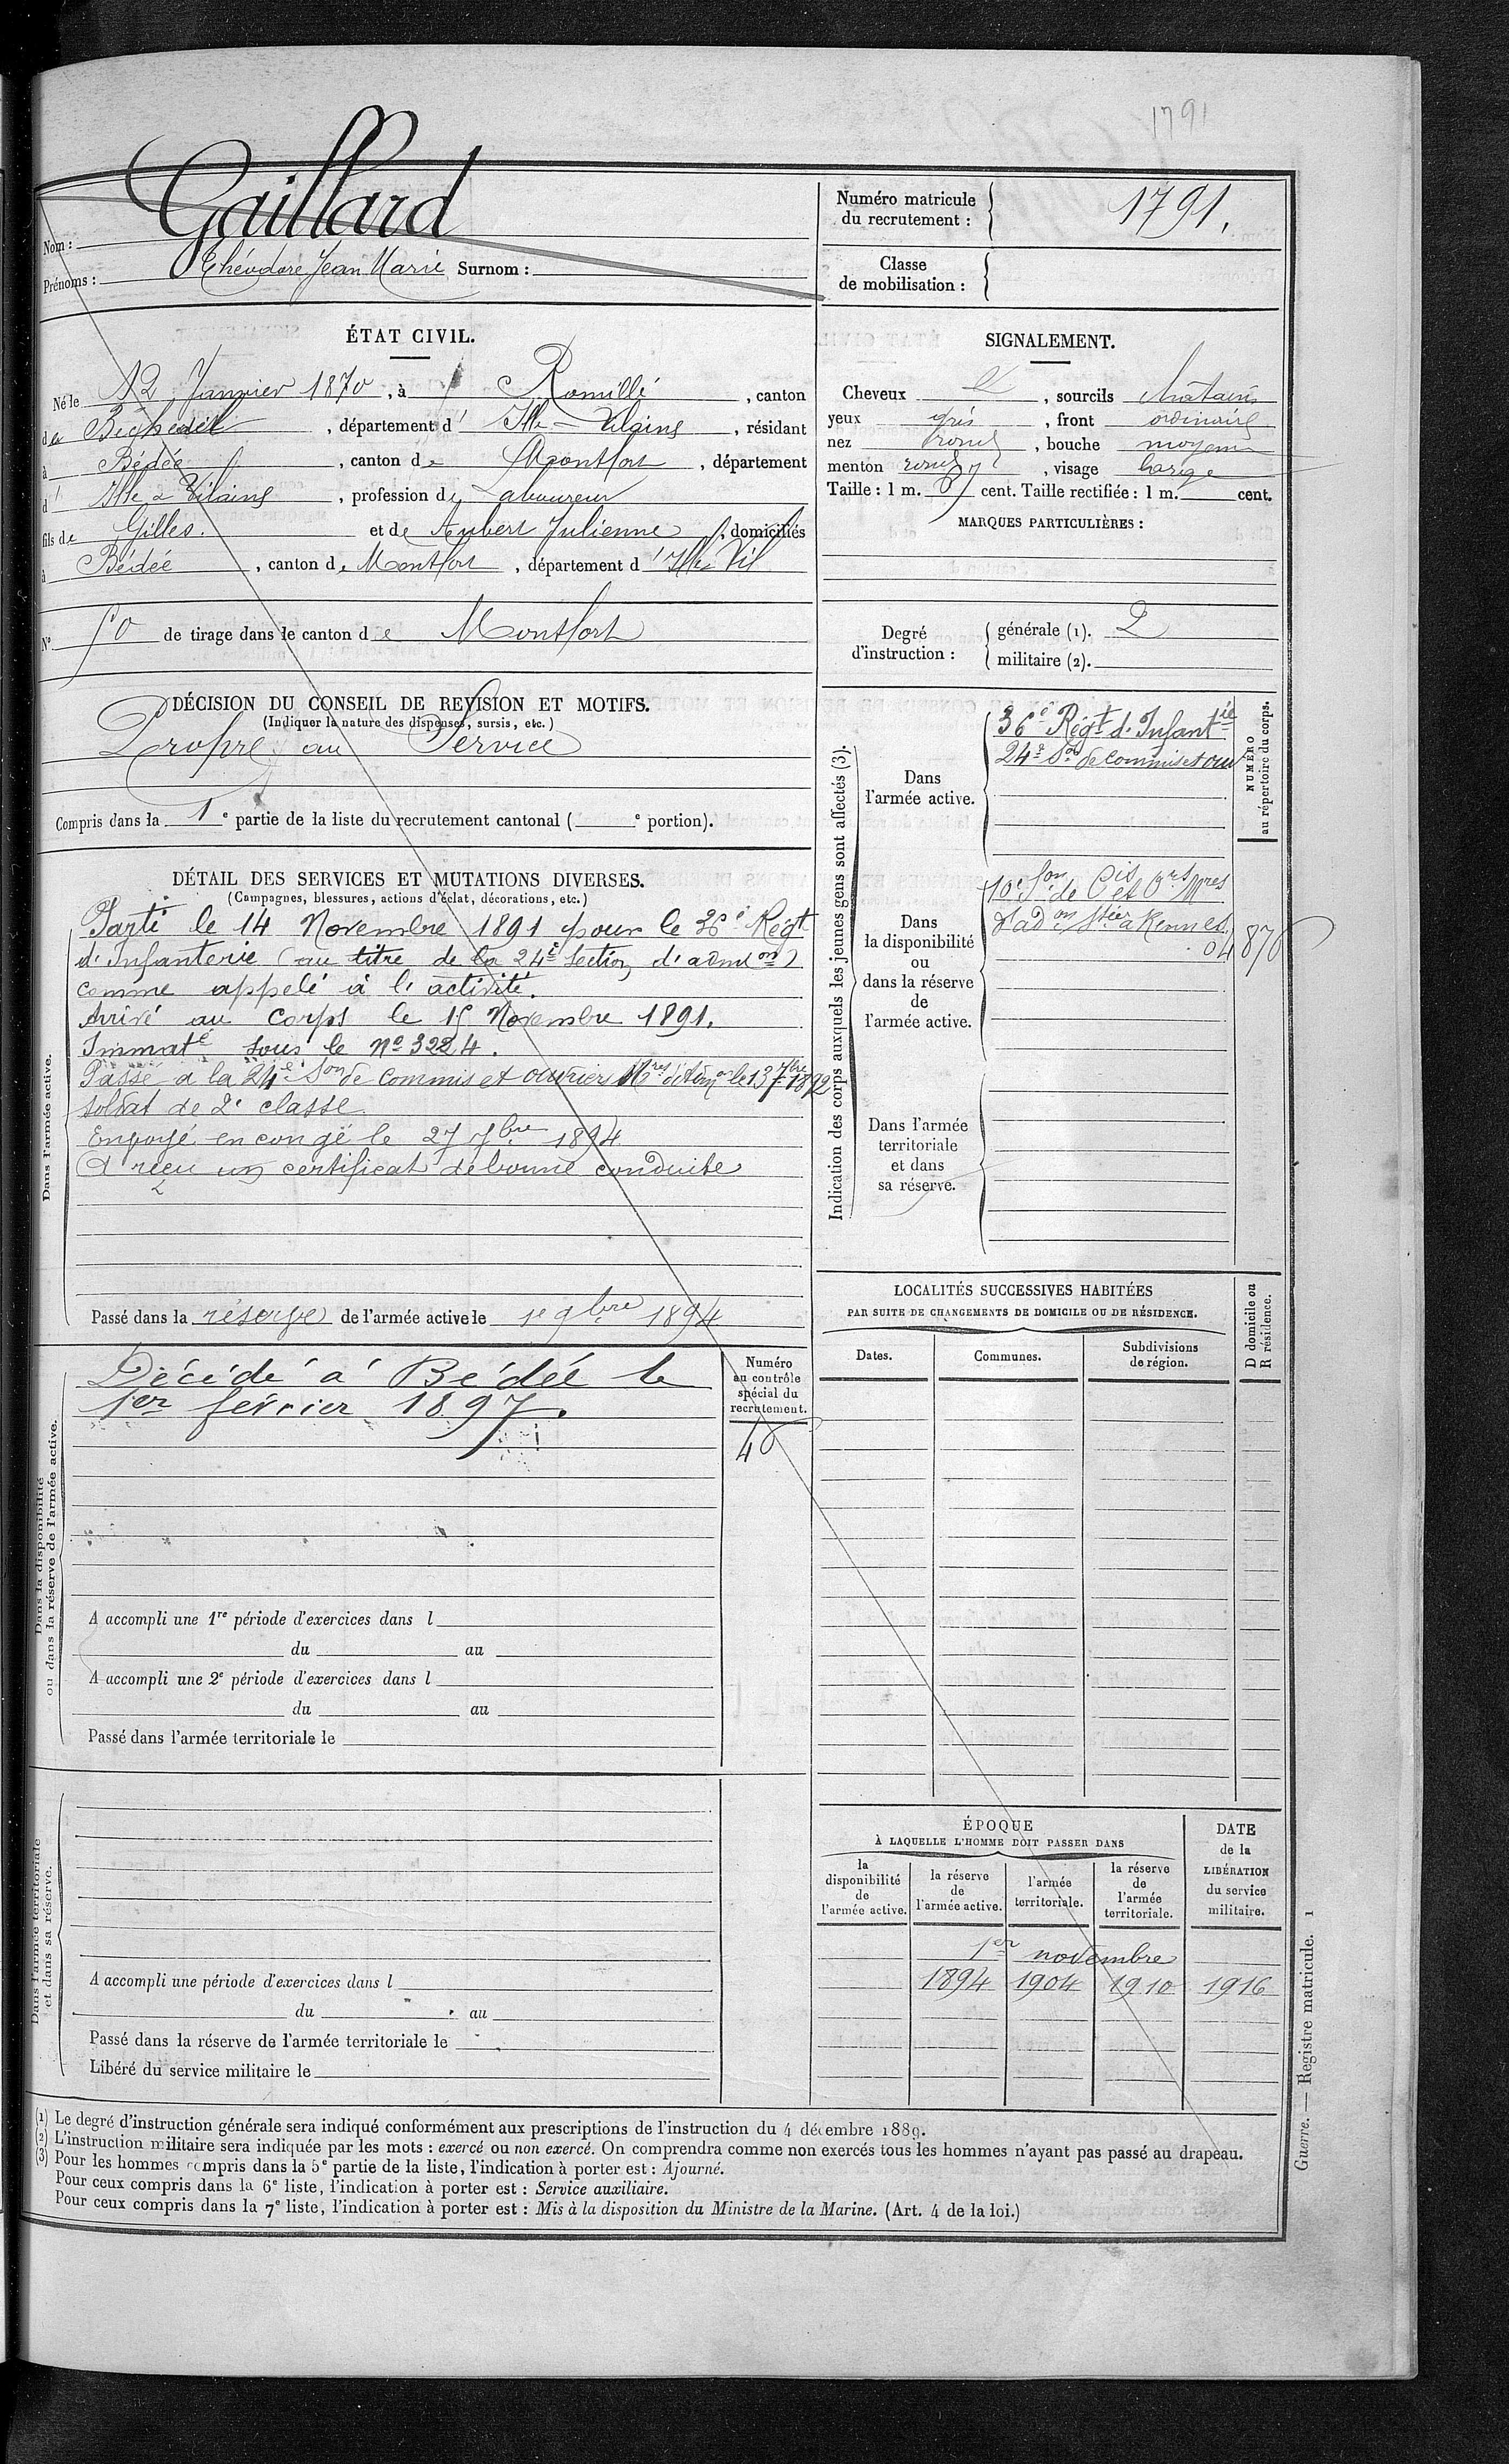 1791
Nom : Gaillard
Prénoms : Théodore Jean Marie Surnom :
Numéro matricule du recrutement : 1791.
Classe de mobilisation :
ÉTAT CIVIL.
Né le 12 Janvier 1870, à Romillé, canton
de Bécherel, département d'Ille-Vilaine, résidant
à Bédée, canton de Montfort, département
d'Ille & Vilaine, profession de Laboureur
fils de Gilles. et de Aubert Julienne, domiciliés
à Bédée, canton de Montfort, département d'Ille Vil
N° 50 de tirage dans le canton de Montfort
SIGNALEMENT.
Cheveux, sourcils chatains
yeux gris, front ordinaire
nez rond, bouche moyenne
menton rond, visage large
Taille : 1 m. cent. Taille rectifiée : 1 m. cent.
MARQUES PARTICULIÈRES :
Degré d'instruction : générale (1). 2
militaire (2).
DÉCISION DU CONSEIL DE REVISION ET MOTIFS.
(Indiquer la nature des dispenses, sursis, etc.)
Propre au Service
Compris dans la 1e partie de la liste du recrutement cantonal (e portion).
DÉTAIL DES SERVICES ET MUTATIONS DIVERSES.
(Campagnes, blessures, actions d'éclat, décorations, etc.)
Dans l'armée active.
Parti le 14 Novembre 1891 pour le 36e Régt
d'Infanterie (au titre de la 24e Section d'admon)
comme appelé à l'activité.
Arrivé au corps le 15 Novembre 1891.
Immaté sous le No 3224.
Passé à la 24e Son de commis et ouvriers Mres d'Admon le 13 7bre 1892
soldat de 2e classe.
Envoyé en congé le 27 7bre 1894
A reçu un certificat de bonne conduite
Passé dans la réserve de l'armée active le 1e 9bre 1894
Indication des corps auxquels les jeunes gens sont affectés (3).
NUMÉRO au répertoire du corps.
Dans l'armée active.
36e Régt d'Infantie
24e Son de commis et ouv
Dans la disponibilité ou dans la réserve de l'armée active.
10e Son de Cis et Ors Mres
d'adon à Rennes
04876
Dans l'armée territoriale et dans sa réserve.
Dans la disponibilité ou dans la réserve de l'armée active.
Décédé à Bédée le
1er février 1897.
Numéro au contrôle spécial du recrutement.
40
A accompli une 1re période d'exercices dans l
du au
A accompli une 2e période d'exercices dans l
du au
Passé dans l'armée territoriale le
LOCALITÉS SUCCESSIVES HABITÉES
PAR SUITE DE CHANGEMENTS DE DOMICILE OU DE RÉSIDENCE.
D domicile ou R résidence.
Dates. Communes. Subdivisions de région.
Dans l'armée territoriale et dans sa réserve.
A accompli une période d'exercices dans l
du au
Passé dans la réserve de l'armée territoriale le
Libéré du service militaire le
ÉPOQUE
À LAQUELLE L'HOMME DOIT PASSER DANS
DATE de la LIBÉRATION du service militaire.
la disponibilité de l'armée active. la réserve de l'armée active. l'armée territoriale. la réserve de l'armée territoriale.
1er novembre
1894 1904 1910 1916
(1) Le degré d'instruction générale sera indiqué conformément aux prescriptions de l'instruction du 4 décembre 1889.
(2) L'instruction militaire sera indiquée par les mots : exercé ou non exercé. On comprendra comme non exercés tous les hommes n'ayant pas passé au drapeau.
(3) Pour les hommes compris dans la 5e partie de la liste, l'indication à porter est : Ajourné.
Pour ceux compris dans la 6e liste, l'indication à porter est : Service auxiliaire.
Pour ceux compris dans la 7e liste, l'indication à porter est : Mis à la disposition du Ministre de la Marine. (Art. 4 de la loi.)
Guerre. — Registre matricule. 1